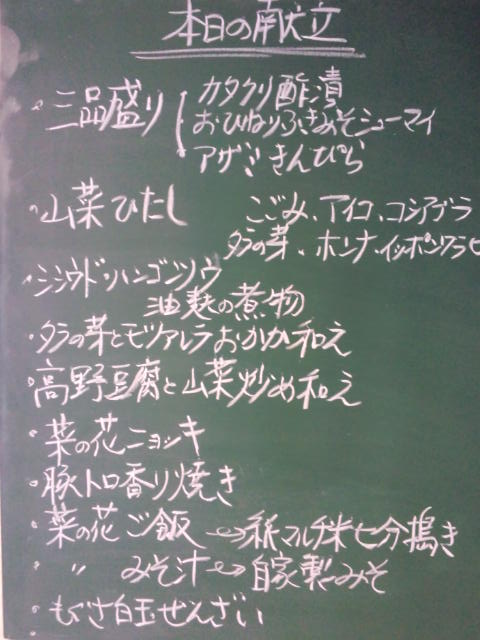 本日の献立
・三品盛り カタクリ酢漬
おひねりふきみそシューマイ
アザミきんぴら
・山菜ひたし こごみ、アイコ、コシアブラ
タラの芽、ホンナ、イッポンワラビ
・シシウド・ハンゴンソウ
油麩の煮物
・タラの芽とモッツァレラおかか和え
・高野豆腐と山菜炒め和え
・菜の花ニョッキ
・豚トロ香り焼き
・菜の花ご飯→紙マルチ米七分搗き
・〃 みそ汁→自家製みそ
・もぐさ白玉ぜんざい